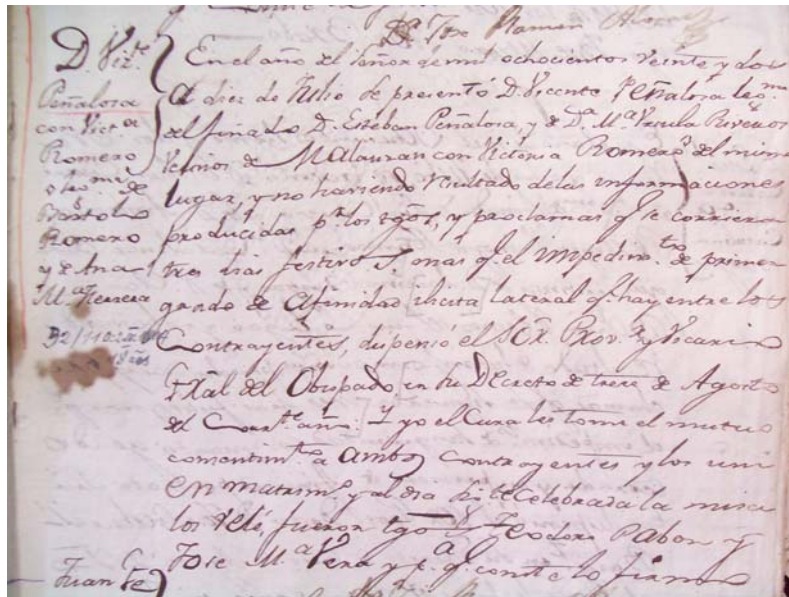 Dr. Jose Ramon Alvarez
D. Viz.te
Peñalosa
con Vict.a
Romero
Leg.ma de
Bartolo
Romero
y de Ana
M.a Herrera
En el año del Señor de mil ochocientos veinte y dos
a diez de Julio se presentó D. Vicente Peñalosa leg.mo
del finado D. Esteban Peñalosa, y de D.a M.a Ursula Riveros
Vecinos de Malauran con Victoria Romero del mismo
lugar, y no haviendo resultado delas informaciones
producidas p.r los tgos, y proclamas q.e se corrieron
tres dias festivos, mas q.e el impedim.to de primer
grado de Afinidad ilicita lateral q.e hay entre los
Contrayentes, dispensó el Sor. Prov.r y Vicario
Gral del Obispado en su Decreto de trece de Agosto
del Corr.te año. Y yo el Cura les tomé el mutuo
consentim.to a ambos contrayentes y los uni
en matrim.o y al dia sig.te celebrada la misa
los velé, fueron tgos Teodoro Pabon y
Jose M.a Vera y p.a q.e conste lo firmo
Juan Fe